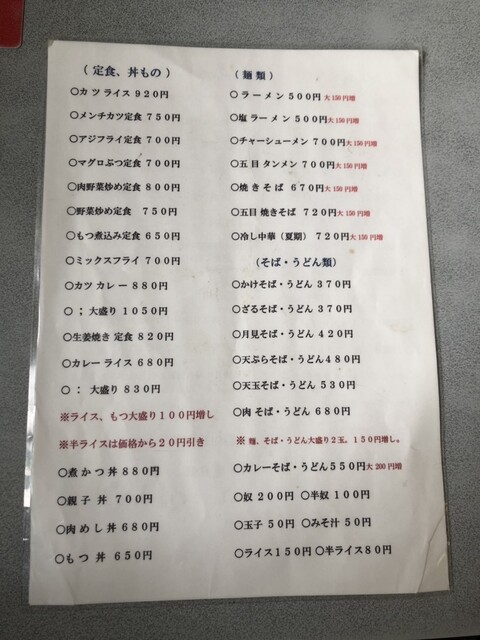 ( 定食、丼もの )
○カツライス 920円
○メンチカツ定食 750円
○アジフライ定食 700円
○マグロぶつ定食 700円
○肉野菜炒め定食 800円
○野菜炒め定食 750円
○もつ煮込み定食 650円
○ミックスフライ 700円
○カツ カレー 880円
○ : 大盛り 1050円
○生姜焼き 定食 820円
○カレーライス 680円
○ : 大盛り 830円
※ライス、もつ大盛り100円増し
※半ライスは価格から20円引き
○煮かつ丼 880円
○親子丼 700円
○肉めし丼 680円
○もつ丼 650円
( 麺類 )
○ラーメン 500円 大150円増
○塩ラーメン 500円 大150円増
○チャーシューメン 700円 大150円増
○五目タンメン 700円 大150円増
○焼きそば 670円 大150円増
○五目焼きそば 720円 大150円増
○冷し中華(夏期) 720円 大150円増
(そば・うどん類)
○かけそば・うどん 370円
○ざるそば・うどん 370円
○月見そば・うどん 420円
○天ぷらそば・うどん480円
○天玉そば・うどん 530円
○肉そば・うどん 680円
※ 麺、そば・うどん大盛り2玉。150円増し。
○カレーそば・うどん550円 大200円増
○奴 200円 ○半奴 100円
○玉子 50円 ○みそ汁 50円
○ライス150円 ○半ライス80円